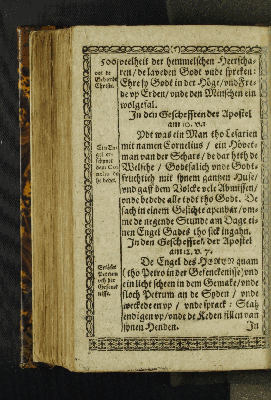 veelheit der hemmelschen Heerscha-
ren / de laveden Godt vnde spreken:
Ehre sy Godt in der Höge / vnd Fre-
de vp Erden / vnde den Minschen ein
wolgefal.
In den Geschefften der Apostel
am 10. v. 1
Ydt was ein Man tho Cesarien
mit namen Cornelius / ein Hövet-
man van der Schare / de dar heth de
Welsche / Godtsalich vnde Godt-
früchtich mit synem gantzen Huse /
vnd gaff dem Volcke vele Almissen /
vnde bedede alle tydt tho Godt. De
sach in einem Gesichte apenbar / vm-
me de negende Stunde am Dage ei-
nen Engel Gades tho sick ingahn.
In den Geschefften der Apostel
am 12. v. 7.
De Engel des HEREN quam
tho Petro in der Gefenckenisse / vnd
ein licht scheen in dem Gemake / vnde
sloch Petrum an de Syden / vnde
weckede en vp / vnde sprack: Stah
endigen vp / vnde de Keden fillen van
synen Henden.
In
vor de
Geborth
Christi.
Ein En-
gel